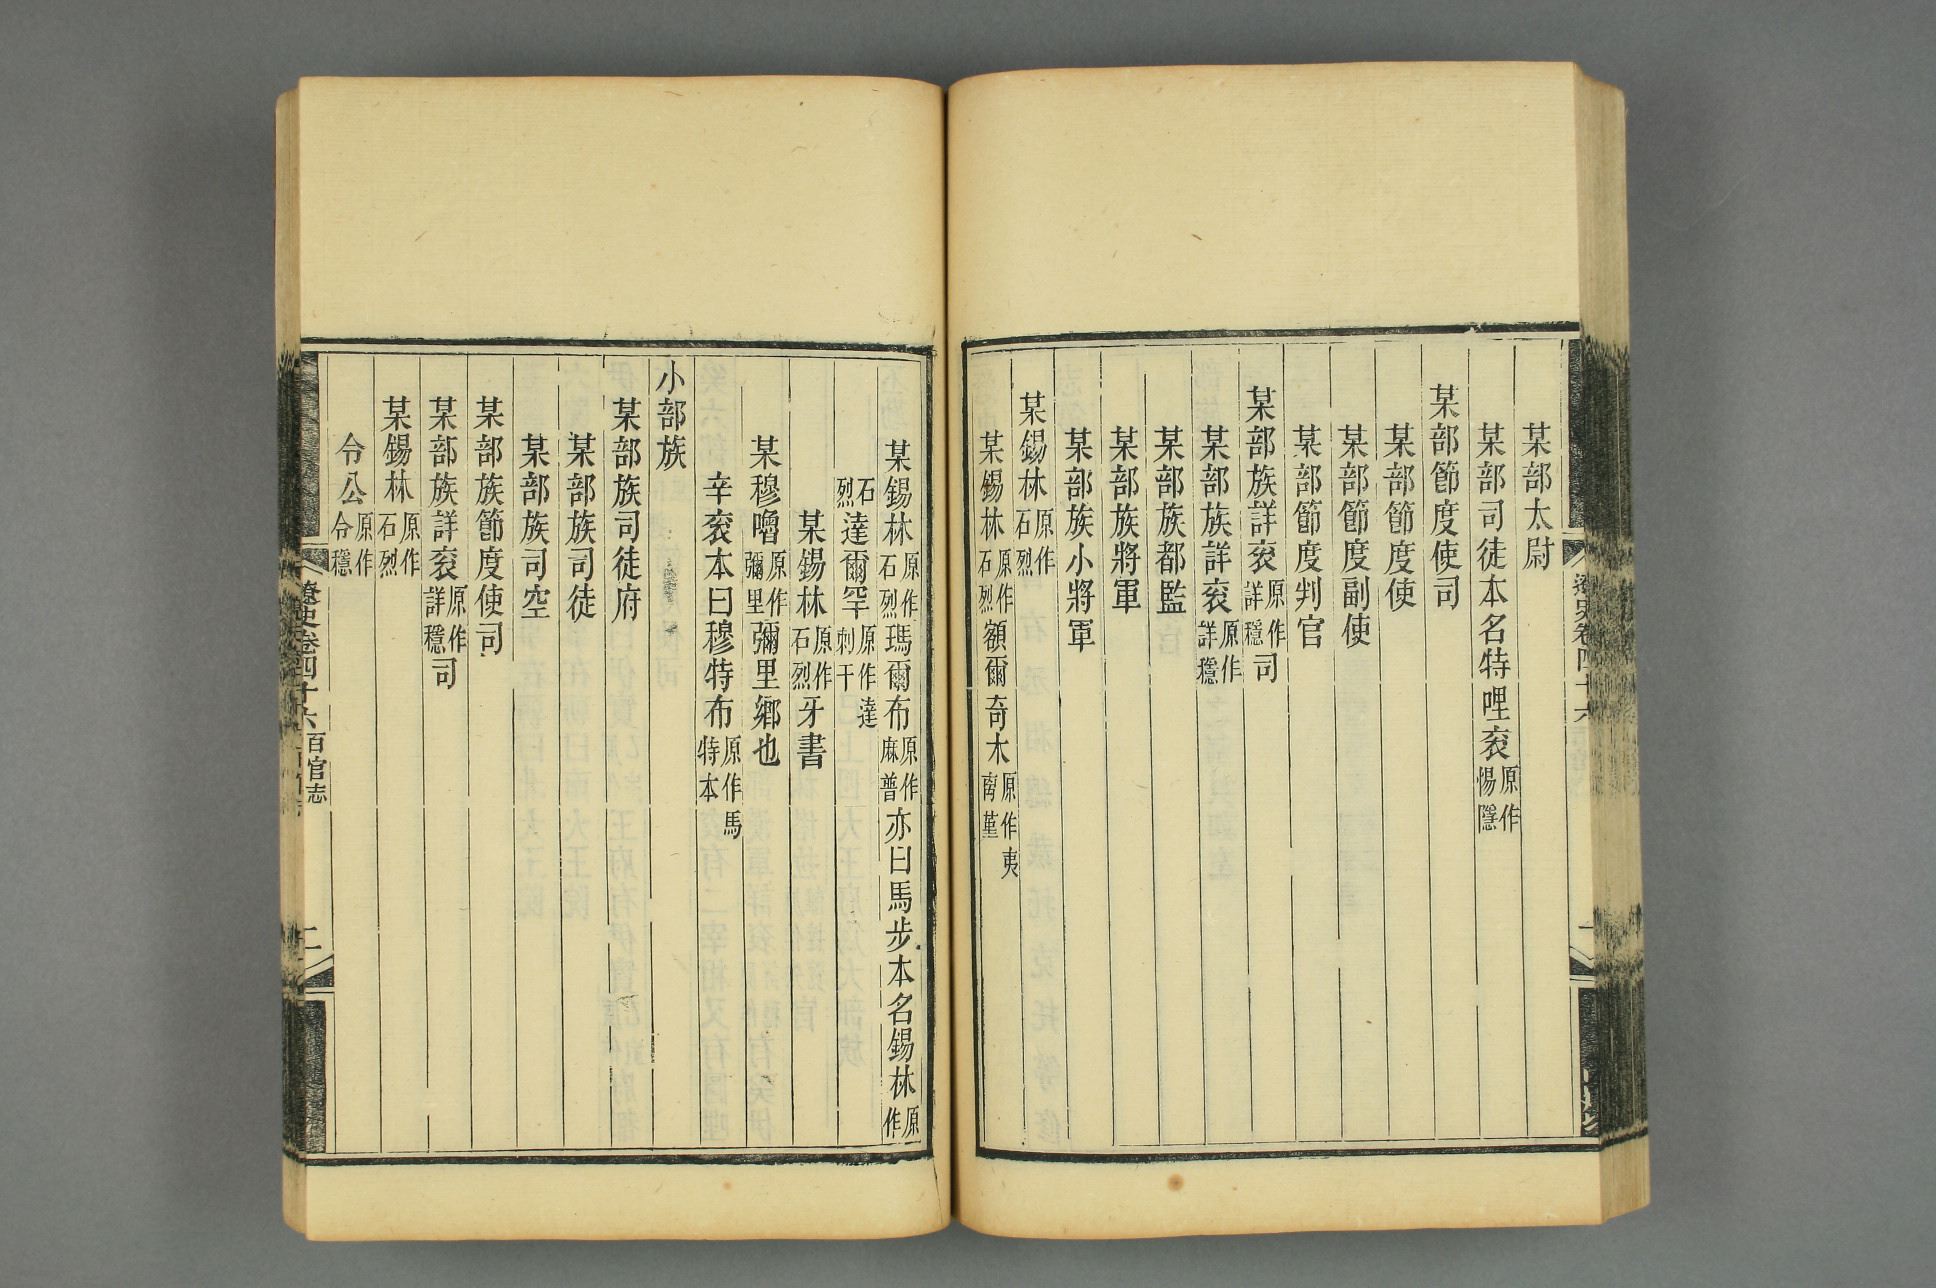 某部太尉
某部司徒本名特哩袞原作惕隱
某部節度使司
某部節度使
某部節度副使
某部節度判官
某部族詳袞原作詳穩司
某部族詳袞原作詳穩
某部族都監
某部族將軍
某部族小將軍
某錫林原作石烈
某錫林原作石烈額爾奇木原作夷离堇
某錫林原作石烈瑪爾布原作麻普亦曰馬步本名錫林原作
石烈達爾罕原作達剌干
某錫林原作石烈牙書
某穆嚕原作彌里彌里鄉也
辛袞本曰穆特布原作馬特本
小部族
某部族司徒府
某部族司徒
某部族司空
某部族節度使司
某部族詳袞原作詳穩司
某錫林原作石烈
令公原作令穩
遼史卷四十六 百官志 二